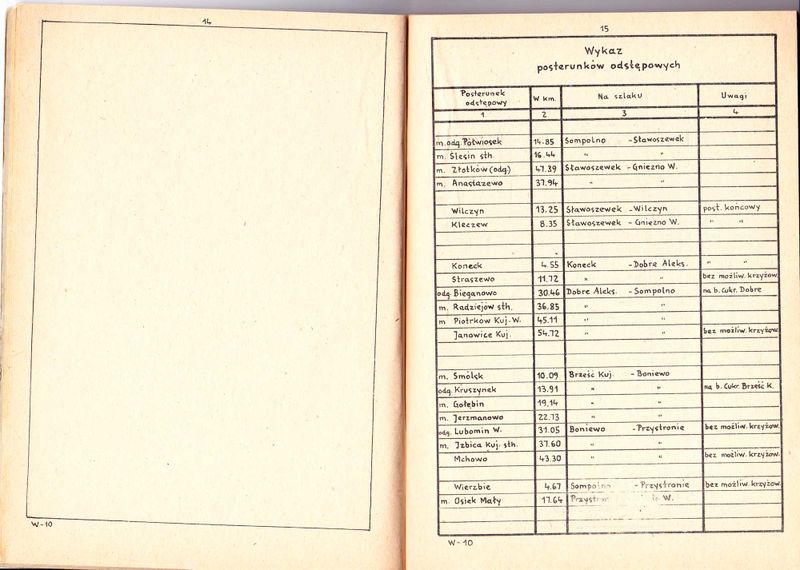 14
W-10
15
Wykaz
posterunków odstępowych
Posterunek odstępowy W km. Na szlaku Uwagi
1 2 3 4
m. odg. Połwiosek 14.85 Sompolno - Sławoszewek
m. Ślesin sth. 16.44 " "
m. Złotków (odg) 47.39 Sławoszewek - Gniezno W.
m. Anastazewo 37.94 " "
Wilczyn 13.25 Sławoszewek - Wilczyn post. końcowy
Kleczew 8.35 Sławoszewek - Gniezno W. " "
Koneck 4.55 Koneck - Dobre Aleks. " "
Straszewo 11.72 " " bez możliw. krzyżow.
odg Bieganowo 30.46 Dobre Aleks. - Sompolno na b. Cukr. Dobre
m. Radziejów sth. 36.85 " "
m Piotrków Kuj. W. 45.11 " "
Janowice Kuj. 54.72 " " bez możliw. krzyżow.
m. Smólsk 10.09 Brześć Kuj. - Boniewo
odg. Kruszynek 13.91 " " na b. Cukr. Brześć K.
m. Gołębin 19,14 " "
m. Jerzmanowo 22.73 " "
odg. Lubomin W. 31.05 Boniewo - Przystronie bez możliw. krzyżow.
m. Izbica Kuj. sth. 37.60 " "
Mchowo 43.30 " " bez możliw. krzyżow.
Wierzbie 4.67 Sompolno - Przystronie bez możliw. krzyżow.
m. Osiek Mały 17.64 W.
W-10